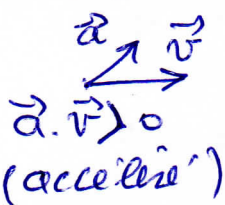 a⃗ v⃗
a⃗ . v⃗ > 0
(accéléré)